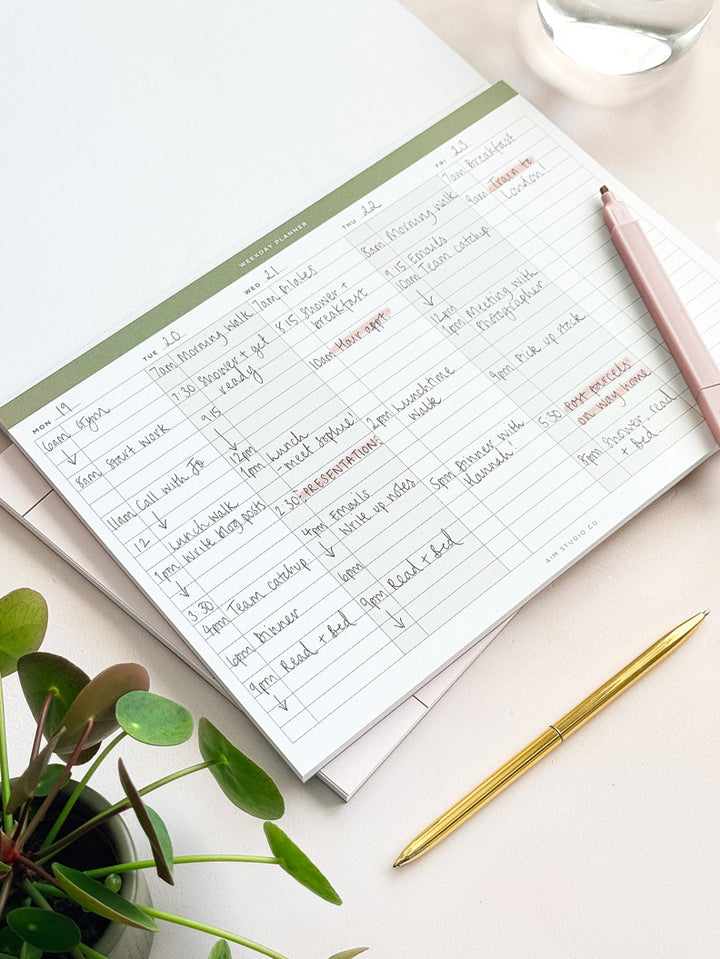 WEEKDAY PLANNER
MON 19
6am Gym
↓
8am Start Work
11am Call with Jo
12 ↓ Lunch walk
1pm Write blog posts
↓
3.30
4pm Team catchup
6pm Dinner
9pm Read + Bed
↓
TUE 20
7am Morning walk
7:30 Shower + get
ready
9.15
↓
12pm
1pm Lunch
- meet Sophie
2.30 PRESENTATION!
4pm Emails
↓ Write up notes
6pm
9pm Read + Bed
↓
WED 21
7am Pilates
8.15 Shower +
breakfast
10am Hair appt.
2pm Lunchtime
walk
5pm Dinner with
Hannah!
THU 22
8am Morning walk
9.15 Emails
10am Team catchup
↓
12pm
1pm Meeting with
Photographer
4pm Pick up stock
5.30 Post parcels
on way home
8pm Shower, read
+ Bed
FRI 23
7am Breakfast
9am Train to
London!
AIM STUDIO CO